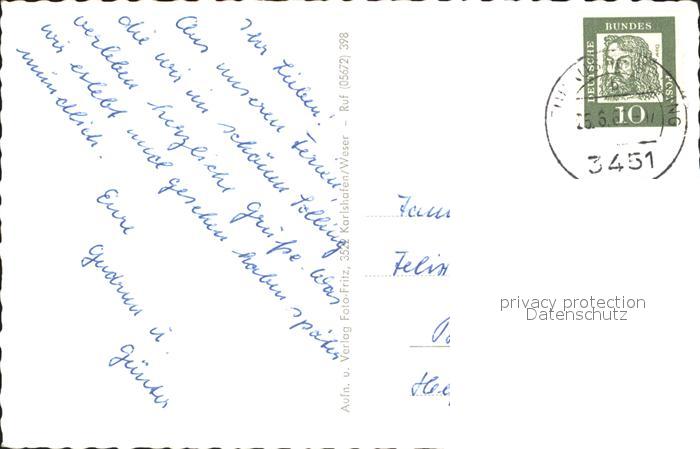 Ihr Lieben!
Aus unseren Ferien,
die wir im schönen Solling
verleben herzliche Grüße. Was
wir erlebt und gesehen haben später
mündlich.
Eure
Gudrun u.
Günter
Aufn. u. Verlag Foto-Fritz, 3522 Karlshafen/Weser – Ruf (05672) 398
DEUTSCHE
BUNDES
POST
10
25.6.
3451
Fam
Felix
privacy protection
Datenschutz